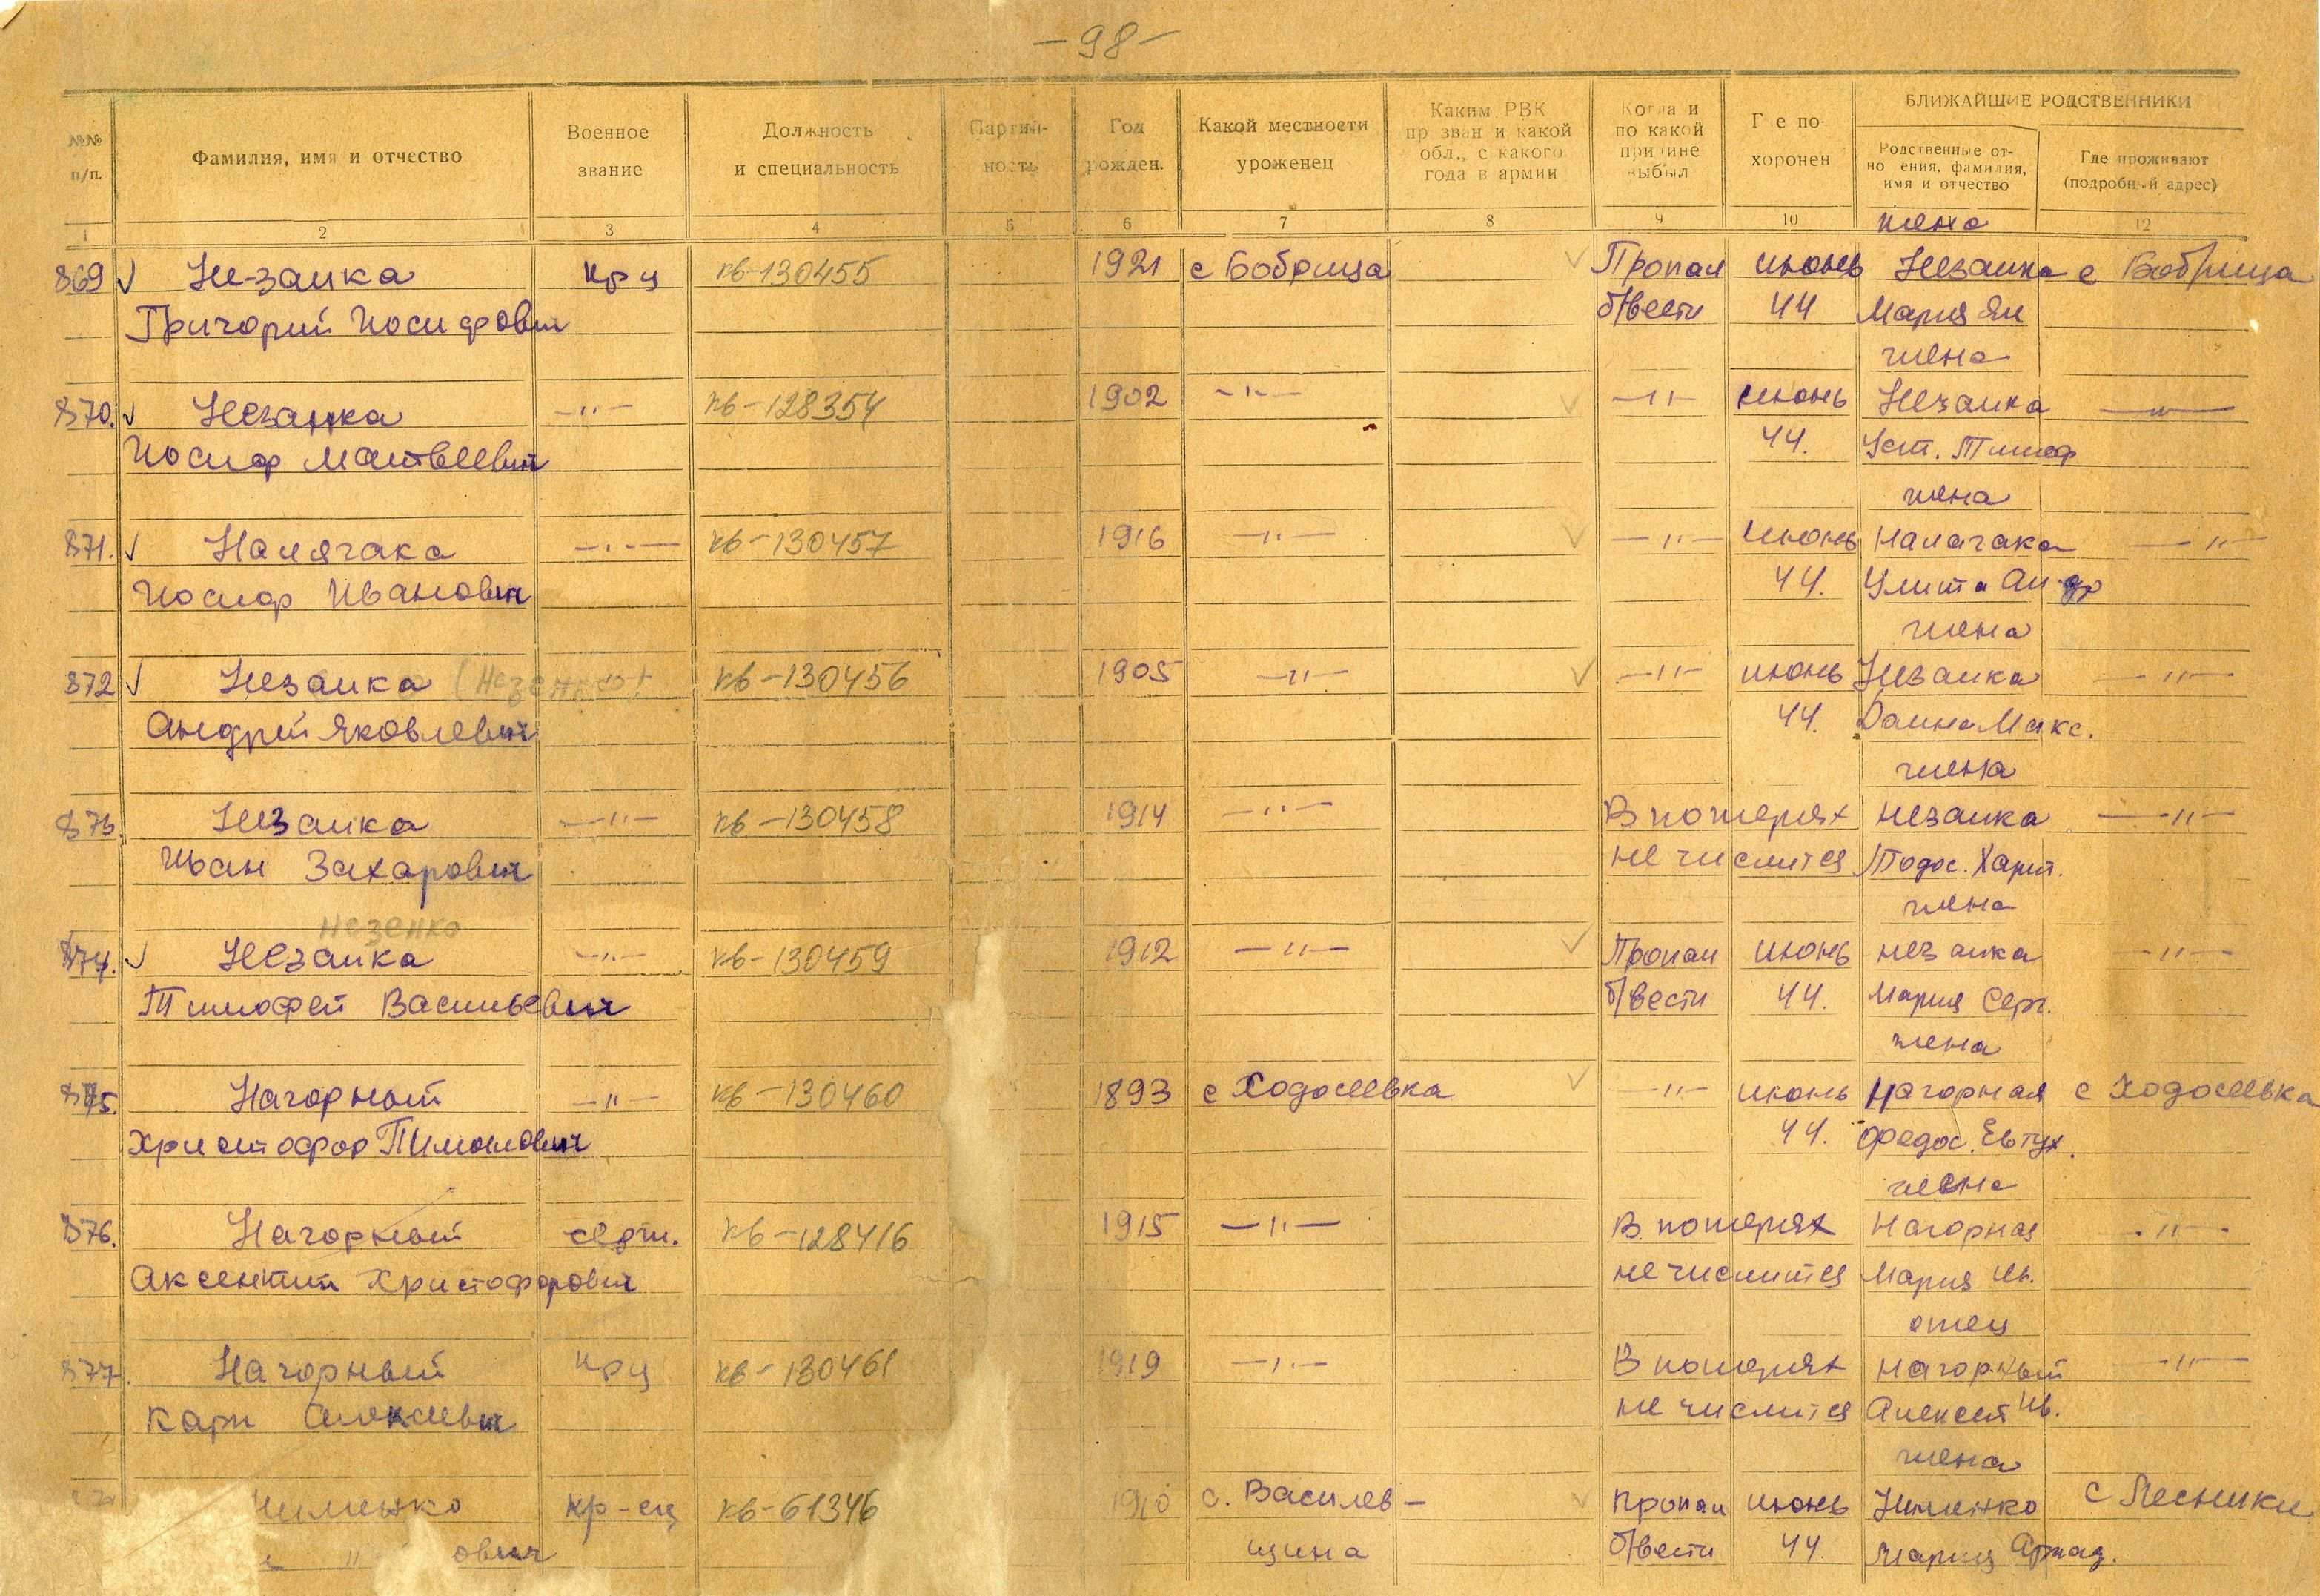 -98-
№№ п/п.
Фамилия, имя и отчество
Военное звание
Должность и специальность
Партийность
Год рожден.
Какой местности уроженец
Каким РВК призван и какой обл., с какого года в армии
Когда и по какой причине выбыл
Где похоронен
БЛИЖАЙШИЕ РОДСТВЕННИКИ
Родственные отношения, фамилия, имя и отчество
Где проживают (подробный адрес)
1 2 3 4 5 6 7 8 9 10 12
жена
869 Незаика кр-ц кв-130455 1921 с Бобрица Пропал июнь Незаика с Бобрица
Григорий Иосифович б/вести 44 Мария Як
жена
870. Незаика -"- кв-128354 1902 -"- -"- июнь Незаика -"-
Иосиф Матвеевич 44. Уст. Тимоф
жена
871. Налягака -"- кв-130457 1916 -"- -"- июнь Налагака -"-
Иосиф Иванович 44. Улита
жена
872 Незаика (Незенко) кв-130456 1905 -"- -"- июнь Незаика -"-
Андрей Яковлевич 44. Макс.
жена
873 Незаика -"- кв-130458 1914 -"- В потерях Незаика -"-
Иван Захарович не числится Тодос. Харит.
жена
Незенко
874. Незаика -"- кв-130459 1912 -"- Пропал июнь Незаика -"-
Тимофей Васильевич б/вести 44. Мария Серг.
жена
875. Нагорный -"- кв-130460 1893 с Ходосеевка -"- июнь Нагорная с Ходосеевка
Христофор Пимонович 44. Федос. Евтух.
жена
876. Нагорный серж. кв-128416 1915 -"- В потерях Нагорная -"-
Аксентий Христофорович не числится Мария Ив.
отец
877. Нагорный кр-ц кв-130461 1919 -"- В потерях Нагорный -"-
Карп Алексеевич не числится Алексей Ив.
жена
Нименко кр-ец кв-61346 1910 с. Василев- Пропал июнь Нименко с Лесники
ович щина б/вести 44. Мария